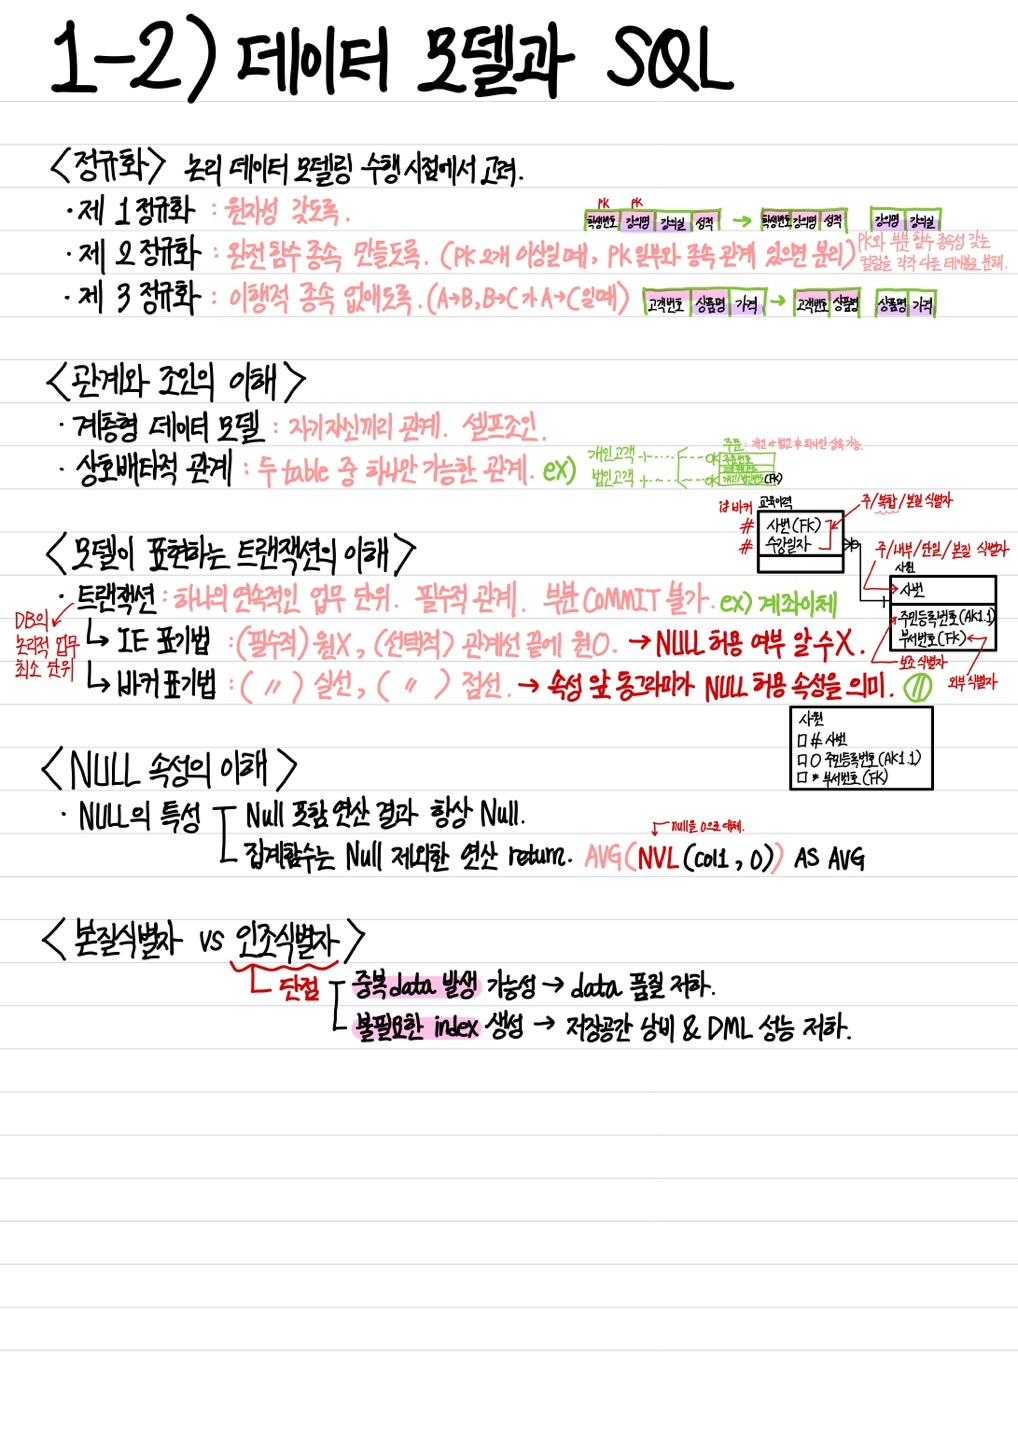 1-2) 데이터 모델과 SQL
<정규화> 논리 데이터 모델링 수행 시점에서 고려.
· 제 1 정규화 : 원자성 갖도록.
PK PK
학생번호 강의명 강의실 성적 → 학생번호 강의명 성적 강의명 강의실
· 제 2 정규화 : 완전 함수 종속 만들도록. (PK 2개 이상일 때, PK 일부와 종속 관계 있으면 분리)
PK와 부분 함수 종속성 갖는
컬럼을 각각 다른 테이블로 분해.
· 제 3 정규화 : 이행적 종속 없애도록. (A→B, B→C 가 A→C일 때)
고객번호 상품명 가격 → 고객번호 상품명 상품명 가격
<관계와 조인의 이해>
· 계층형 데이터 모델 : 자기자신끼리 관계. 셀프조인.
· 상호배타적 관계 : 두 table 중 하나만 가능한 관계. ex)
개인고객
법인고객
주문 : 개인 or 법인 中 하나만 상속 가능.
주문번호
개인/법인번호(FK)
<모델이 표현하는 트랜잭션의 이해>
id 바커 교육이력
# 사번(FK)
# 수강일자
주/복합/본질 식별자
주/내부/단일/본질 식별자
사원
사번
주민등록번호(AK1.1)
부서번호(FK)
보조 식별자
외부 식별자
· 트랜잭션 : 하나의 연속적인 업무 단위. 필수적 관계. 부분 COMMIT 불가. ex) 계좌이체
DB의
논리적 업무
최소 단위
↳ IE 표기법 : (필수적) 원X, (선택적) 관계선 끝에 원O. → NULL 허용 여부 알 수 X.
↳ 바커 표기법 : ( 〃 ) 실선, ( 〃 ) 점선. → 속성 앞 동그라미가 NULL 허용 속성을 의미.
사원
□ # 사번
□ O 주민등록번호(AK1.1)
□ * 부서번호(FK)
<NULL 속성의 이해>
· NULL의 특성 Null 포함 연산 결과 항상 Null.
null을 0으로 대체.
집계함수는 Null 제외한 연산 return. AVG(NVL(col1, 0)) AS AVG
<본질식별자 vs 인조식별자>
단점 중복data 발생 가능성 → data 품질 저하.
불필요한 index 생성 → 저장공간 낭비 & DML 성능 저하.